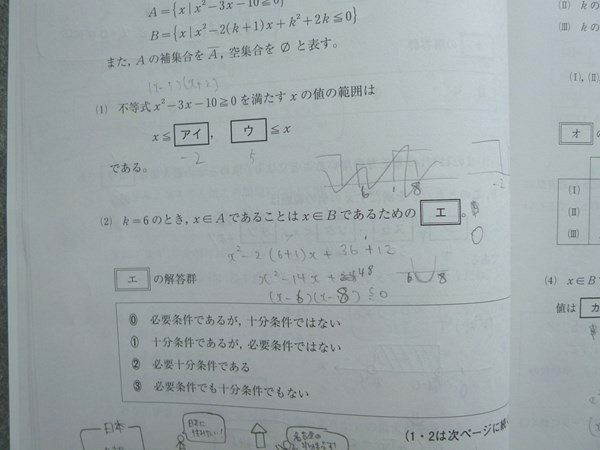 A={x | x²−3x−10≧0}
B={x | x²−2(k+1)x+k²+2k≦0}
また，Aの補集合をA̅，空集合を∅と表す。
(x-5)(x+2)
(1) 不等式 x²−3x−10≧0 を満たす x の値の範囲は
x≦ アイ ， ウ ≦x
-2 5
である。
6 8
-2
(2) k=6のとき，x∈Aであることはx∈Bであるための エ 。
0
x²-2(6+1)x+36+12
エ の解答群
x²-14x+48
6 8
(x-6)(x-8)≦0
⓪ 必要条件であるが，十分条件ではない
① 十分条件であるが，必要条件ではない
② 必要十分条件である
③ 必要条件でも十分条件でもない
日本
(1・2は次ページに続
(II) kの
(I)，(II)
オ の
(I)
(II)
(III)
(4) x∈B
値は カ